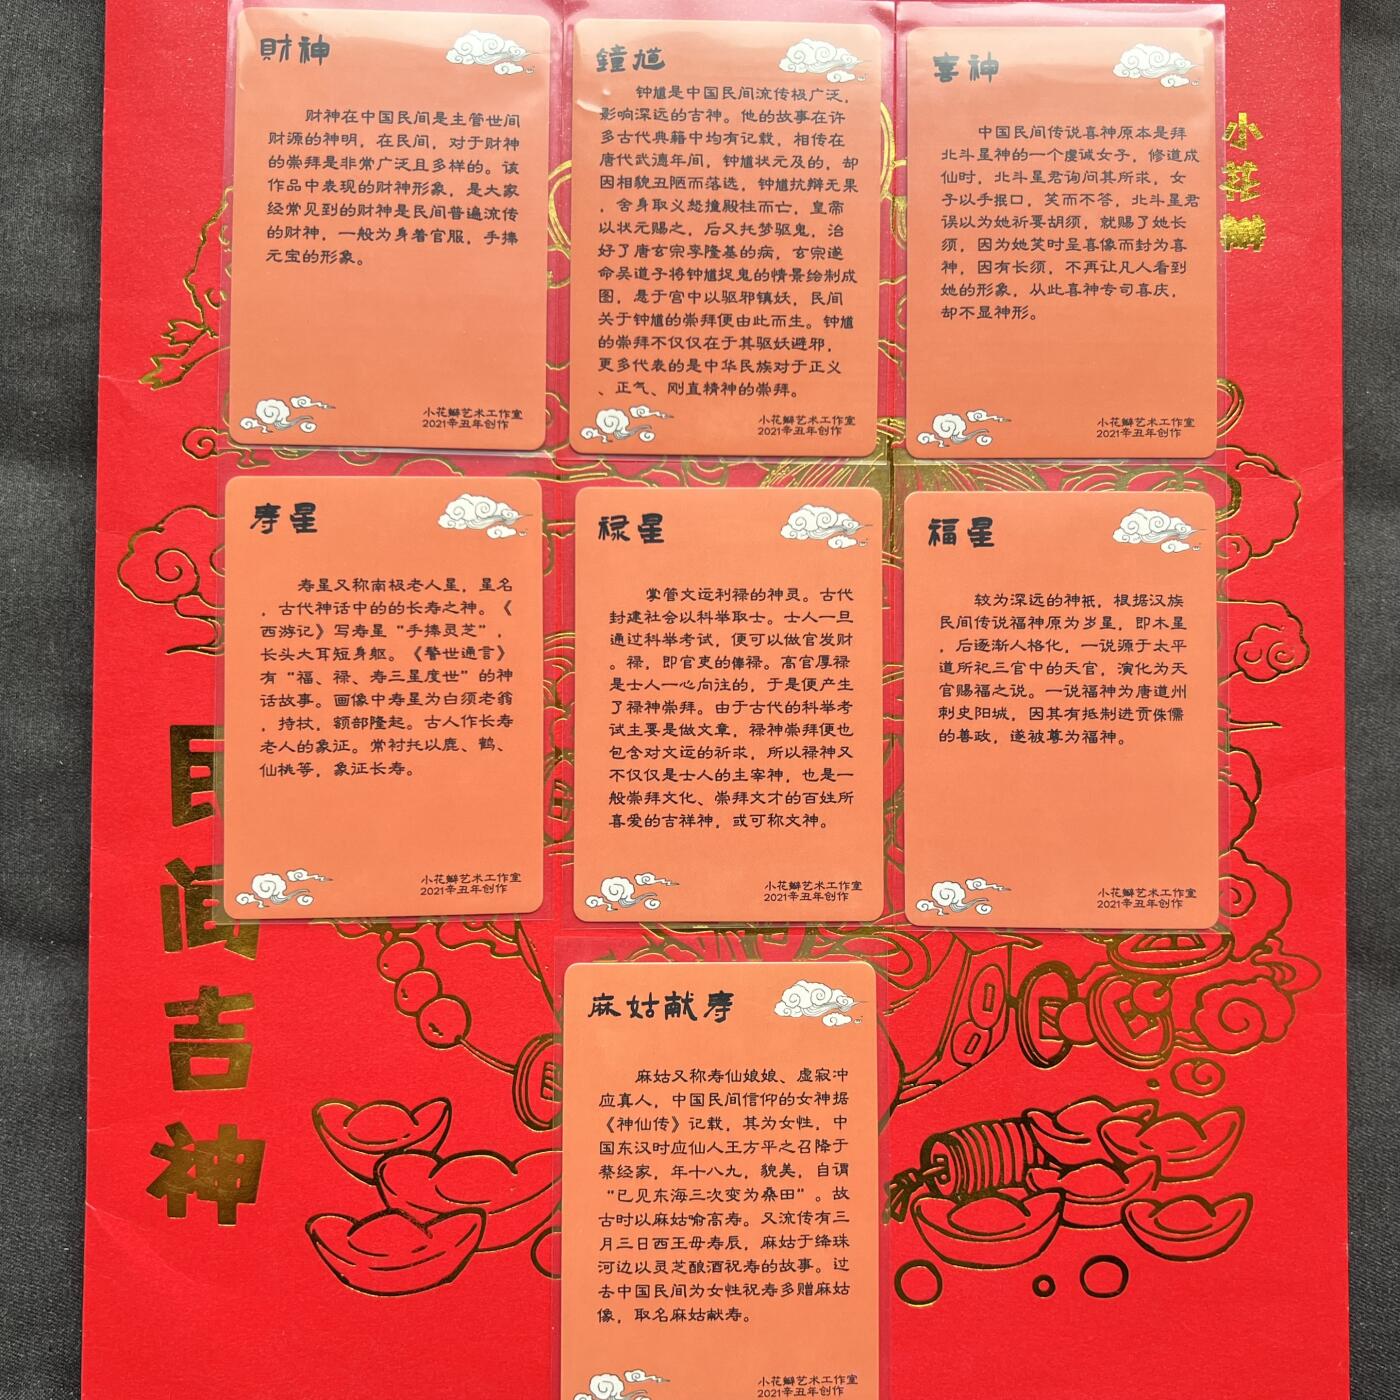 財神
财神在中国民间是主管世间
财源的神明，在民间，对于财神
的崇拜是非常广泛且多样的。该
作品中表现的财神形象，是大家
经常见到的财神是民间普遍流传
的财神，一般为身着官服，手捧
元宝的形象。
小花瓣艺术工作室
2021辛丑年创作
鐘馗
钟馗是中国民间流传极广泛，
影响深远的吉神。他的故事在许
多古代典籍中均有记载，相传在
唐代武德年间，钟馗状元及的，却
因相貌丑陋而落选，钟馗抗辩无果
，舍身取义怒撞殿柱而亡，皇帝
以状元赐之，后又托梦驱鬼，治
好了唐玄宗李隆基的病，玄宗遂
命吴道子将钟馗捉鬼的情景绘制成
图，悬于宫中以驱邪镇妖，民间
关于钟馗的崇拜便由此而生。钟馗
的崇拜不仅仅在于其驱妖避邪，
更多代表的是中华民族对于正义
、正气、刚直精神的崇拜。
小花瓣艺术工作室
2021辛丑年创作
喜神
中国民间传说喜神原本是拜
北斗星神的一个虔诚女子，修道成
仙时，北斗星君询问其所求，女
子以手抿口，笑而不答，北斗星君
误以为她祈要胡须，就赐了她长
须，因为她笑时呈喜像而封为喜
神，因有长须，不再让凡人看到
她的形象，从此喜神专司喜庆，
却不显神形。
小花瓣艺术工作室
2021辛丑年创作
小花瓣
寿星
寿星又称南极老人星，星名
，古代神话中的的长寿之神。《
西游记》写寿星“手捧灵芝”，
长头大耳短身躯。《警世通言》
有“福、禄、寿三星度世”的神
话故事。画像中寿星为白须老翁
，持杖，额部隆起。古人作长寿
老人的象征。常衬托以鹿、鹤、
仙桃等，象征长寿。
小花瓣艺术工作室
2021辛丑年创作
禄星
掌管文运利禄的神灵。古代
封建社会以科举取士。士人一旦
通过科举考试，便可以做官发财
。禄，即官吏的俸禄。高官厚禄
是士人一心向往的，于是便产生
了禄神崇拜。由于古代的科举考
试主要是做文章，禄神崇拜便也
包含对文运的祈求，所以禄神又
不仅仅是士人的主宰神，也是一
般崇拜文化、崇拜文才的百姓所
喜爱的吉祥神，或可称文神。
小花瓣艺术工作室
2021辛丑年创作
福星
较为深远的神祇，根据汉族
民间传说福神原为岁星，即木星
，后逐渐人格化，一说源于太平
道所祀三官中的天官，演化为天
官赐福之说。一说福神为唐道州
刺史阳城，因其有抵制进贡侏儒
的善政，遂被尊为福神。
小花瓣艺术工作室
2021辛丑年创作
民间吉神
麻姑献寿
麻姑又称寿仙娘娘、虚寂冲
应真人，中国民间信仰的女神据
《神仙传》记载，其为女性，中
国东汉时应仙人王方平之召降于
蔡经家，年十八九，貌美，自谓
“已见东海三次变为桑田”。故
古时以麻姑喻高寿。又流传有三
月三日西王母寿辰，麻姑于绛珠
河边以灵芝酿酒祝寿的故事。过
去中国民间为女性祝寿多赠麻姑
像，取名麻姑献寿。
小花瓣艺术工作室
2021辛丑年创作